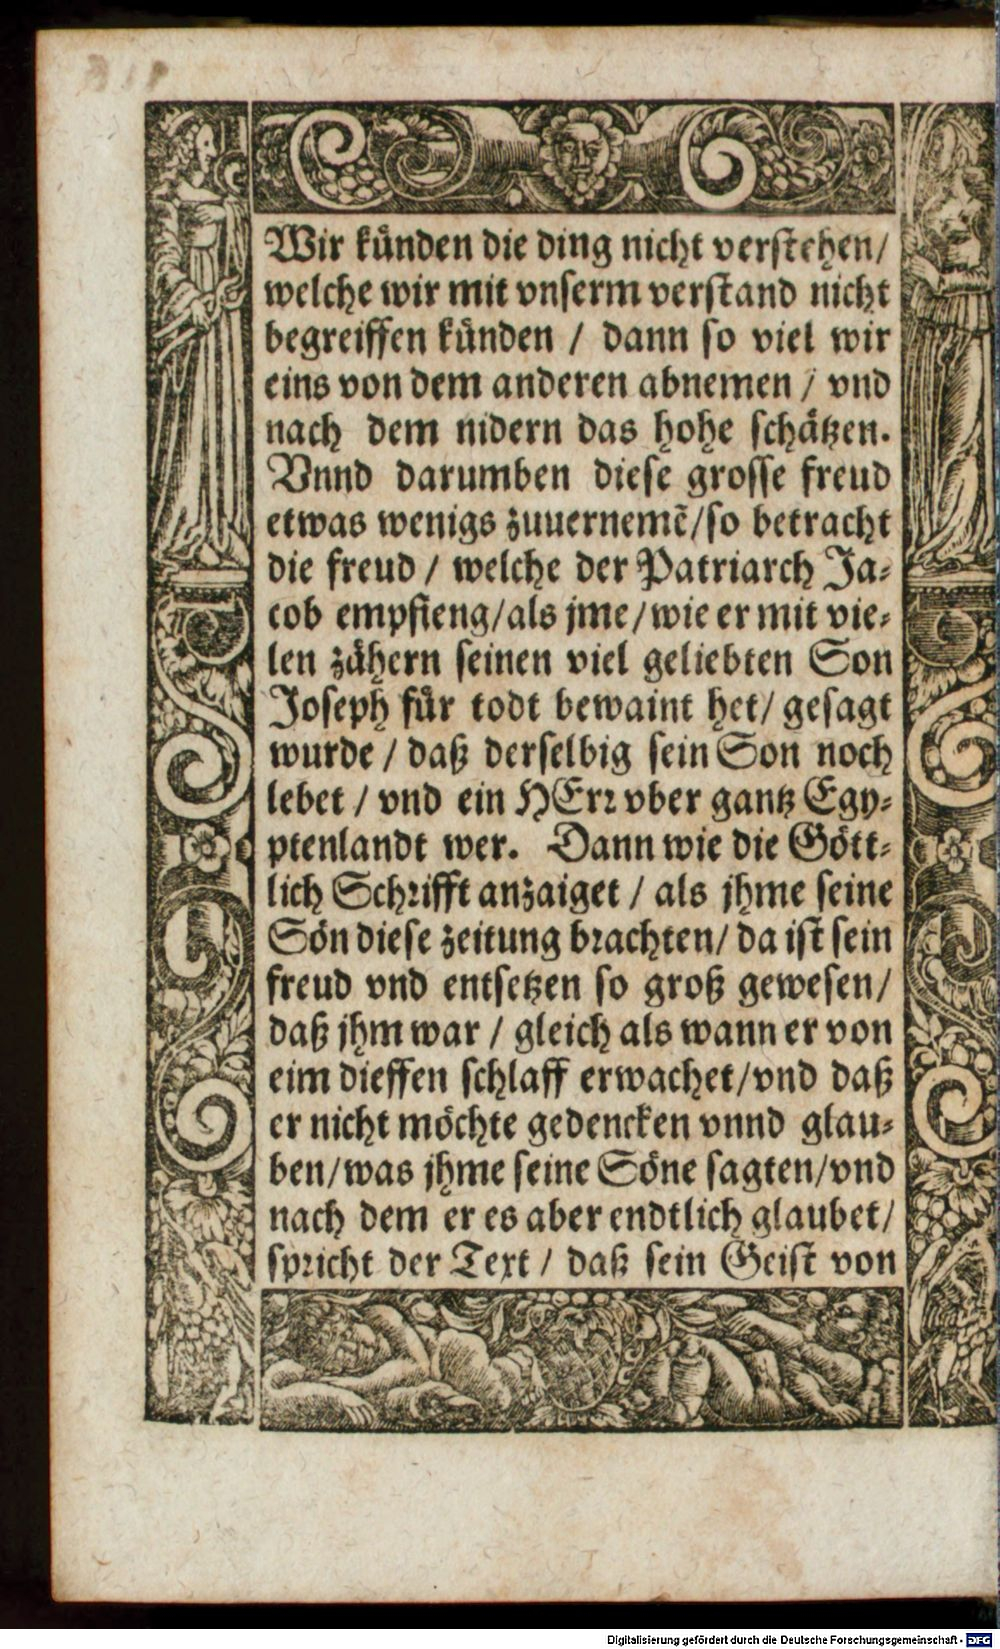 Wir künden die ding nicht verstehen/
welche wir mit vnserm verstand nicht
begreiffen künden / dann so viel wir
eins von dem anderen abnemen / vnd
nach dem nidern das hohe schätzen.
Vnnd darumben diese grosse freud
etwas wenigs zuuernemẽ/so betracht
die freud / welche der Patriarch Ja⸗
cob empfieng/als jme/wie er mit vie⸗
len zähern seinen viel geliebten Son
Joseph für todt bewaint het/ gesagt
wurde / daß derselbig sein Son noch
lebet / vnd ein HErr vber gantz Egy⸗
ptenlandt wer. Dann wie die Gött⸗
lich Schrifft anzaiget / als jhme seine
Sön diese zeitung brachten/ da ist sein
freud vnd entsetzen so groß gewesen/
daß jhm war / gleich als wann er von
eim dieffen schlaff erwachet/vnd daß
er nicht möchte gedencken vnnd glau⸗
ben/was jhme seine Söne sagten/vnd
nach dem er es aber endtlich glaubet/
spricht der Text / daß sein Geist von
Digitalisierung gefördert durch die Deutsche Forschungsgemeinschaft - DFG